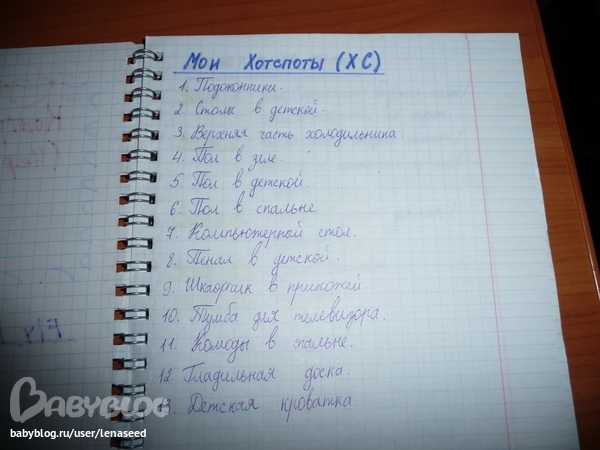 Мои Хотспоты (ХС)
1. Подоконники.
2. Столы в детской.
3. Верхняя часть холодильника
4. Пол в зале.
5. Пол в детской.
6. Пол в спальне
7. Компьютерный стол.
8. Пенал в детской.
9. Шкафчик в прихожей
10. Тумба для телевизора.
11. Комоды в спальне.
12. Гладильная доска.
13. Детская кроватка.
BABYBLOG
babyblog.ru/user/lenaseed